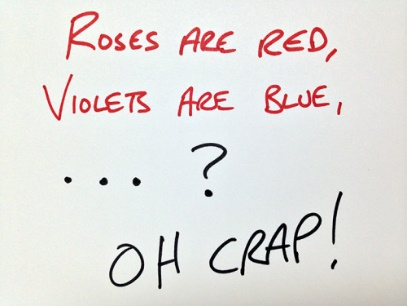 ROSES ARE RED,
VIOLETS ARE BLUE,
... ?
OH CRAP!